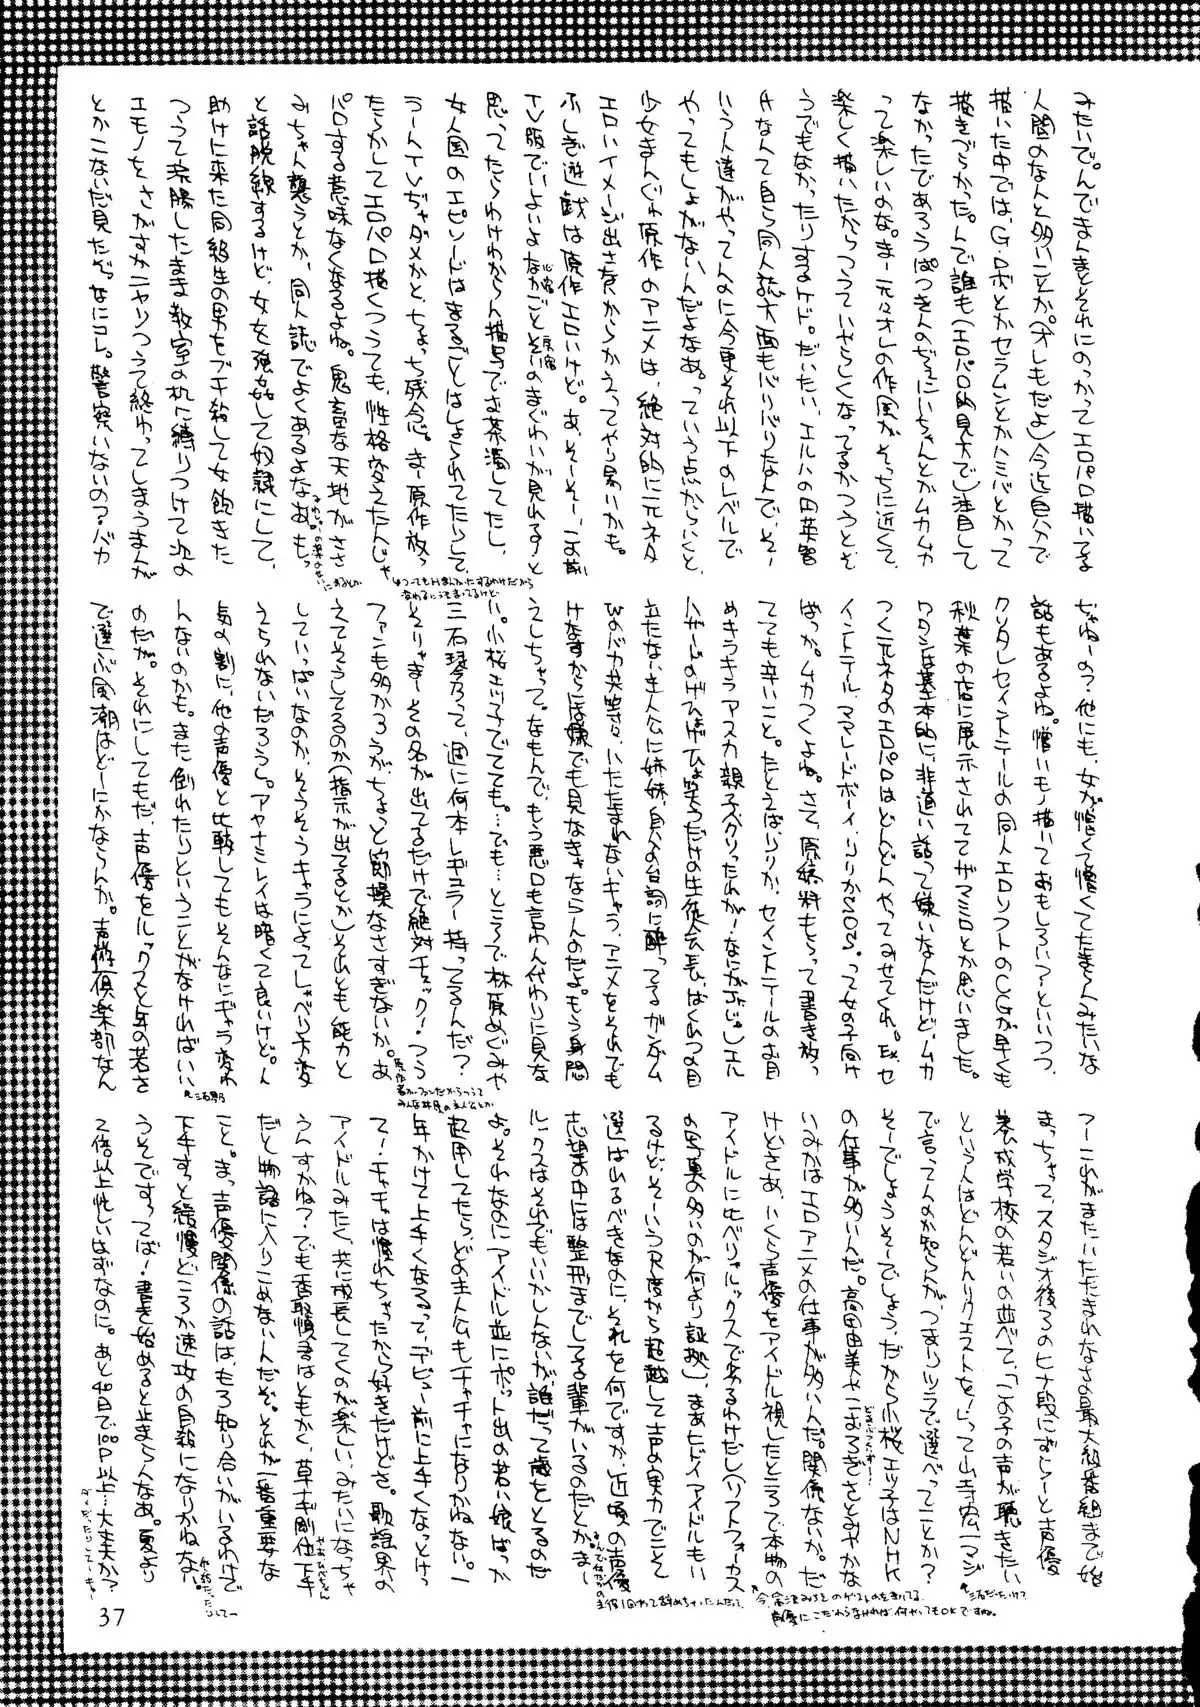 みたいで。んでまんまとそれにのっかってエロパロ描いてる
人間のなんと多いことか。(オレもだよ)今迄自分で
描いた中では、Gロボとかセラムンとかハミパとかって
描きづらかった。んで誰も(エロパロ的見方で)注目して
なかったであろう
って楽しいのな。ま一元々オレの作風がそっちに近くて、
楽しく描いたからつっていやらしくなってるかっつうとそ
うでもなかったりするケド。だいたい、エルハの田英智
さなんて自ら同人誌
いう人達がやってんのに今更それ以下のレベルで
やってもしょがないんだよなあ。っていう点からいくと、
少女まんが原作のアニメは、絶対的に元ネタ
エロいイメージ出さないからかえってやり易いかも。
ふしぎ遊戯は原作エロいけど。あ、そーそー、こお前
TV版でいよいよなかごとそいのまぐわいが見れる!と
思ってたらわけわからん描写でお茶濁してたし、
女人国のエピソードはまるごとはしょられてたりして、
うーんTVぢゃダメかと、ちょっち残念。まー原作
たらかしてエロパロ描くっつうても、性格変えたんじゃ
パロする意味なくなるよね。鬼畜な天地がささ
みちゃん襲うとか、同人誌でよくあるよなあ。もっ
と話脱線するけど、女女強姦して奴隷にして、
助けに来た同級生の男をブチ殺して女飽きた
つって浣腸したまま教室の机に縛りつけて次の
エモノをさがすかニヤリつって終わってしまうまんが
とかこないだ見たぞ。なにコレ。警察いないの?バカ
ぢゃねーの?他にも、女が憎くて憎くてたまらんみたいな
話もあるよね。憎いモノ描いておもしろい?といいつつ、
クソタレセイントテールの同人エロソフトのCGが早くも
秋葉の店に展示されててザマミロとか思いました。
ワタシは基本的に非道い話って嫌いなんだけど、ムカ
つく元ネタのエロパロはどんどんやってみせてくれ。Ex.セ
イントテール、ママレードボーイ、りりかSOS。って女の子向け
ばっか。ムカつくよね。さて、原稿料もらって書き放っ
てても辛いこと。たとえばりりか、セイントテールのお目
めキラキラアスカ親子ベクリったれが!なにが ! エル
ハザードのげひょげひょ笑うだけの生徒会長、ばくれつの目
立たない主人公に姉妹、自分の台詞に酔ってるガンダム
Wのバカ共等々、いたたまれないキャラ、アニメをそれでも
けなすからには嫌でも見なきゃならんのだよ。もう身悶
えしちゃって。なもんで、もう悪口も言わん代わりに見な
い。小桜エツ子でてても。…でも…ところで林原めぐみや
三石琴乃って、週に何本レギュラー持ってるんだ?
そりゃまーその名が出てるだけで絶対チェック!っつう
ファンも多かろうが、ちょっと節操なさすぎないか。あ
えてそうしてるのか(指示が出てるとか)それとも能力と
していっぱいなのか、そうそうキャラによってしゃべり方変
えられないだろうし。アヤナミレイは暗くて良いけど。人
気の割に、他の声優と比較してもそんなにギャラ変わ
んないのかも。また倒れたりということがなければいい
のだが。それにしてもだ、声優をルックスと年の若さ
で選ぶ風潮はどーにかならんか。声優倶楽部なん
つーこれがまたいたたまれなさの最大級番組まで始
まっちゃって、スタジオ後ろのヒナ段にずらーと声優
養成学校の若いの並べて、「この子の声が聴きたい
という人はどんどんリクエストを!」って山寺宏一マジ
で言ってんのか知らんが、つまりツラで選べってことか?
そーでしょうそーでしょう、だから小桜エツ子はNHK
の仕事が多いんだ。高田由美やこおろぎさとみやかな
いみかはエロアニメの仕事が多いんだ。関係ないか。だ
けどさあ、いくら声優をアイドル視したところで本物の
アイドルに比べりゃルックスで劣るわけだし(ソフトフォーカス
の写真の多いのが何より証拠)、まあヒドイアイドルもい
るけど、そーいう尺度から超越して声の実力でこそ
選ばれるべきなのに、それを何ですか、近頃の声優
志望の中には整形までしてる輩がいるのだとか。まー
ルックスはそれでもいいかしんないが、誰だって歳をとるのだ
よ。それなのにアイドル並にポット出の若い娘ばっか
起用してたら、どの主人公もチャチャになりかねない。1
年かけて上手くなるって、デビュー前に上手くなっとけっ
て!チャチャは慣れちゃったから好きだけどさ。歌謡界の
アイドルみたく、共に成長してくのが楽しい、みたいになっちゃ
うんすかね?でも香取慎吾はともかく、草ナギ剛位下手
だと物語に入りこめないんだぞ。それが一番重要な
こと。まっ声優関係の話は、もろ知り合いがいるわけで
下手すっと緩慢どころか速攻の自殺になりかねな。
うそですってば!書き始めると止まらんなあ。夏より
2倍以上忙しいはずなのに。あと40日で100P以上…大丈夫か?
37